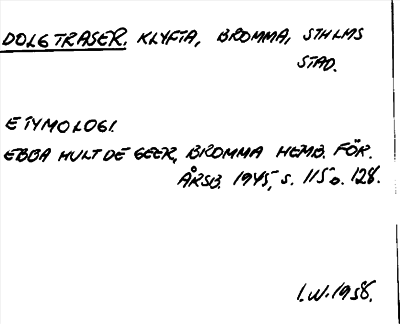 DOLGTRASER. KLYFTA, BROMMA, STHLMS
STAD.
ETYMOLOGI.
EBBA HULT DE GEER, BROMMA HEMB. FÖR.
ÅRSB. 1945, s. 115 o. 128.
I.W. 1958.